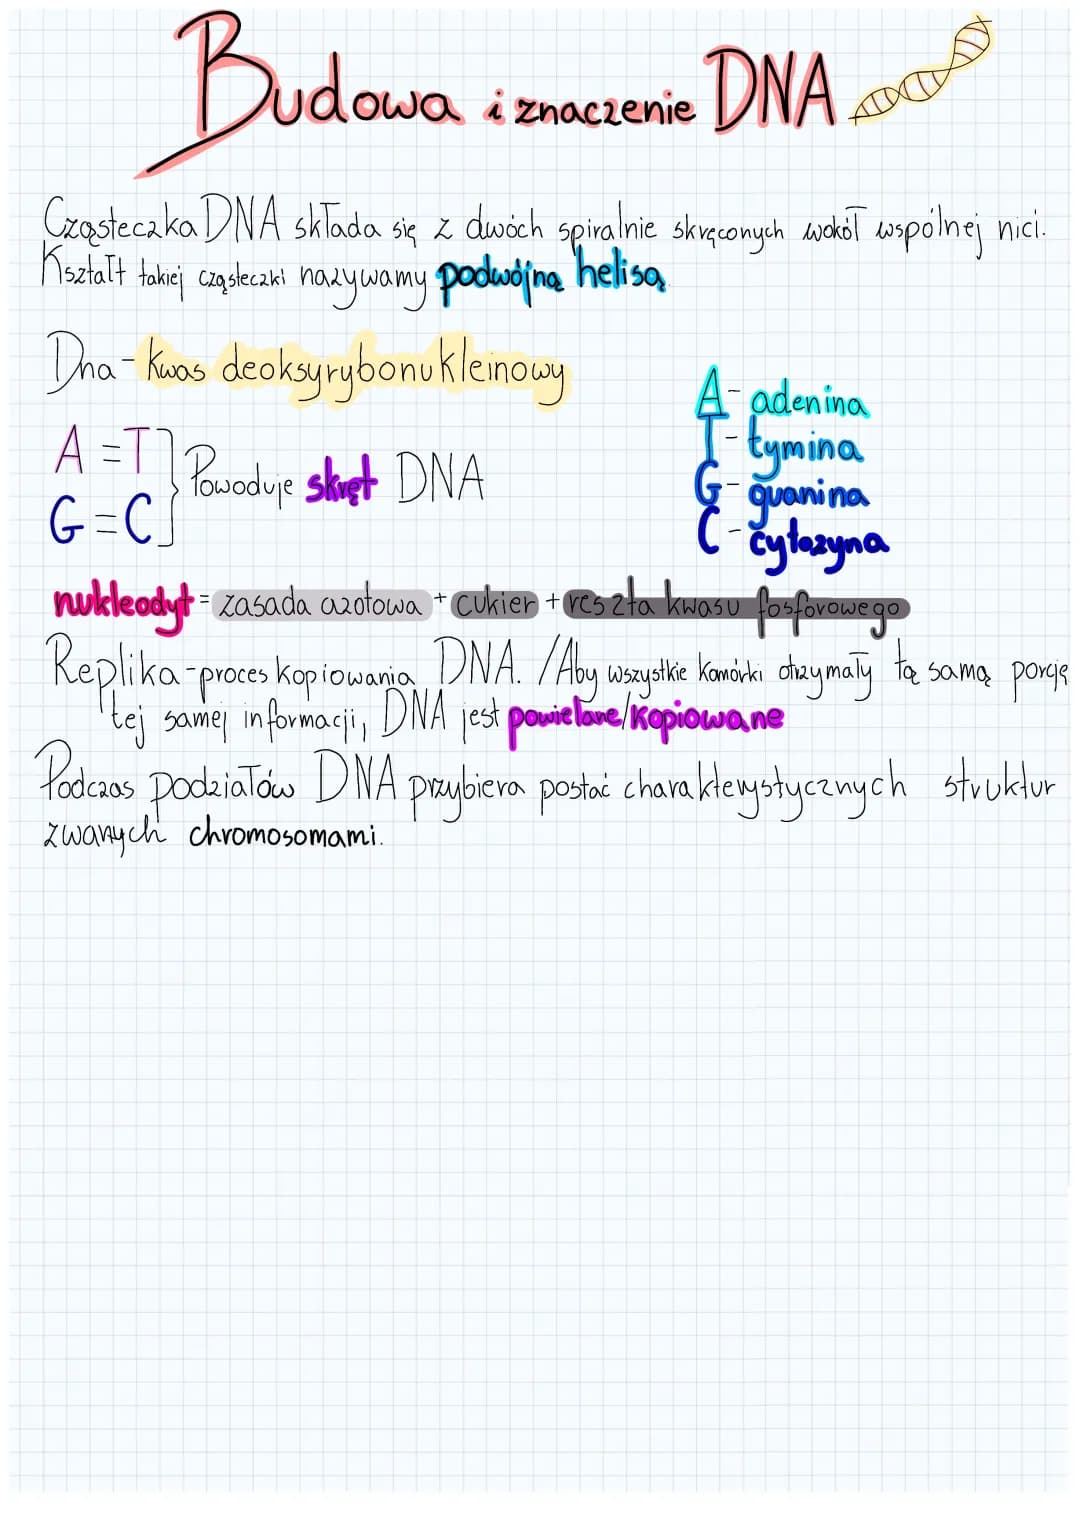 Budowa i znaczenie DNA
Cząsteczka DNA składa się z dwóch spiralnie skręconych wokół wspólnej nici.
Kształt takiej cząsteczki nazywamy podwójną helisą.
Dna - kwas deoksyrybonukleinowy
A = T
G ≡ C
Powoduje skręt DNA
A - adenina
T - tymina
G - guanina
C - cytozyna
nukleodyt = zasada azotowa + cukier + reszta kwasu fosforowego
Replika - proces kopiowania DNA. /Aby wszystkie komórki otrzymały tą samą porcję
tej samej informacji, DNA jest powielane/kopiowane
Podczas podziałów DNA przybiera postać charakterystycznych struktur
zwanych chromosomami.